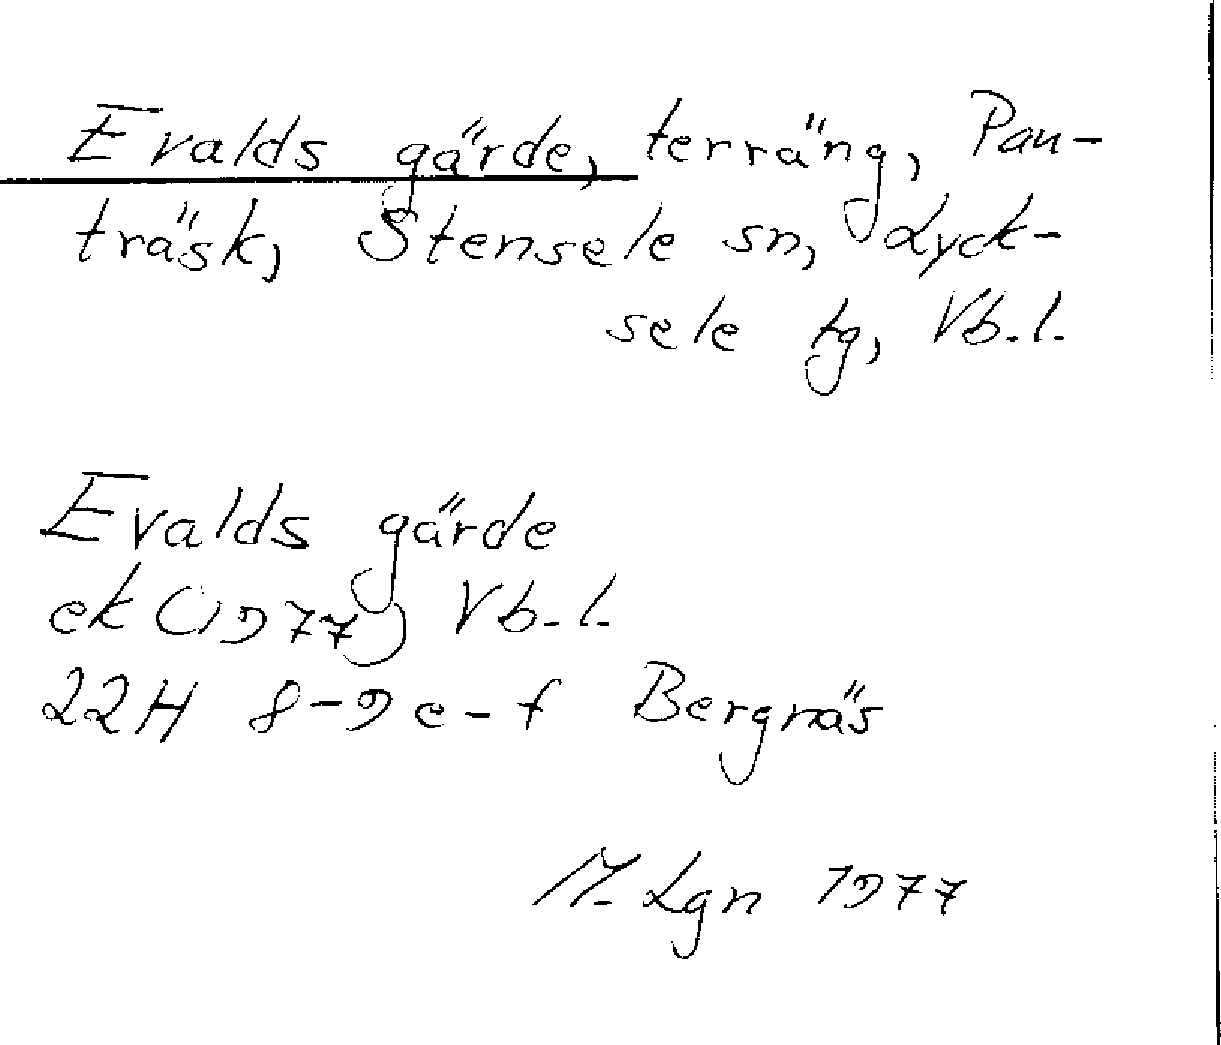 Evalds gärde, terräng, Pau-
träsk, Stensele sn, Lyck-
sele tg, Vb.l.
Evalds gärde
ek (1977) Vb.l.
22H 8-9 e-f Bergnäs
M. Lgn 1977